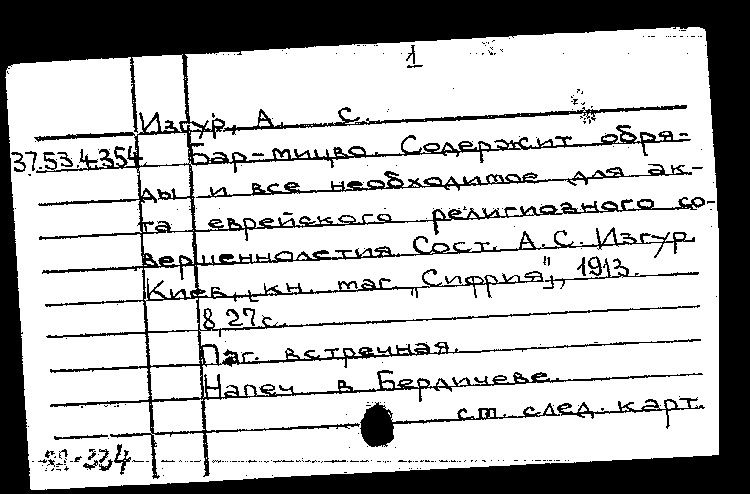 1
Изгур, А. С.
37.53.4.354 Бар-мицво. Содержит обря-
ды и все необходимое для ак-
та еврейского религиозного со-
вершеннолетия. Сост. А. С. Изгур.
Киев, кн. маг. „Сифрия", 1913.
8, 27 с.
Паг. встречная.
Напеч. в Бердичеве.
см. след. карт.
-334